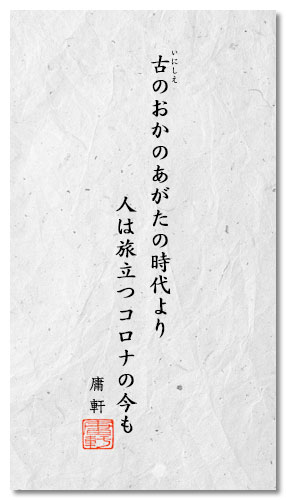 いにしえ
古のおかのあがたの時代より
人は旅立つコロナの今も
庸軒